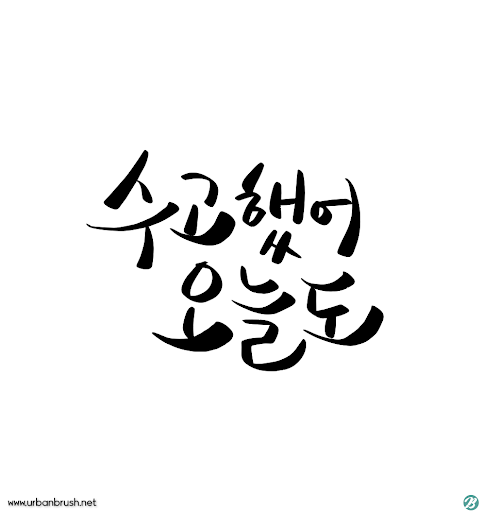 수고했어
오늘도
www.urbanbrush.net